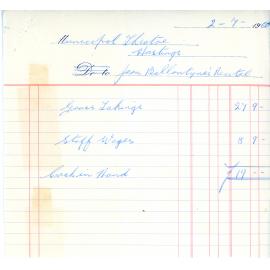 2 - 7 - 1960
Municipal Theatre
Hastings
Dr to Jean Ballantyne's Recital
Gross Takings 27 9 -
Staff Wages 8 9 -
Cash in Hand £19 - -